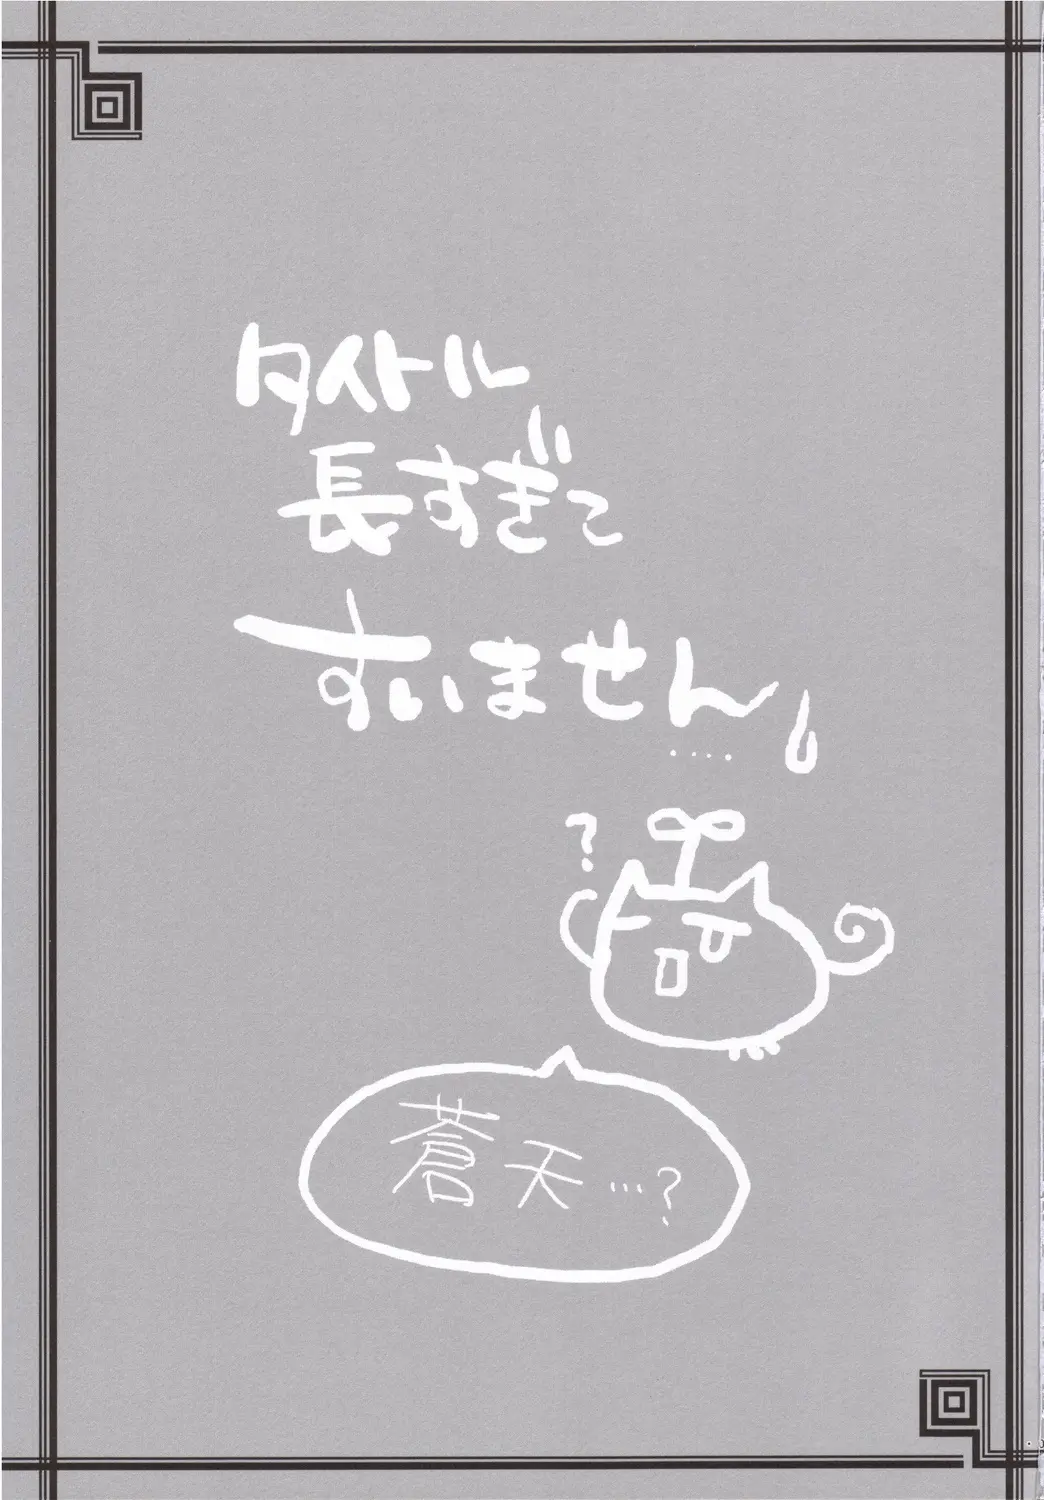 タイトル
長すぎて
すいません
....
?
蒼天…?